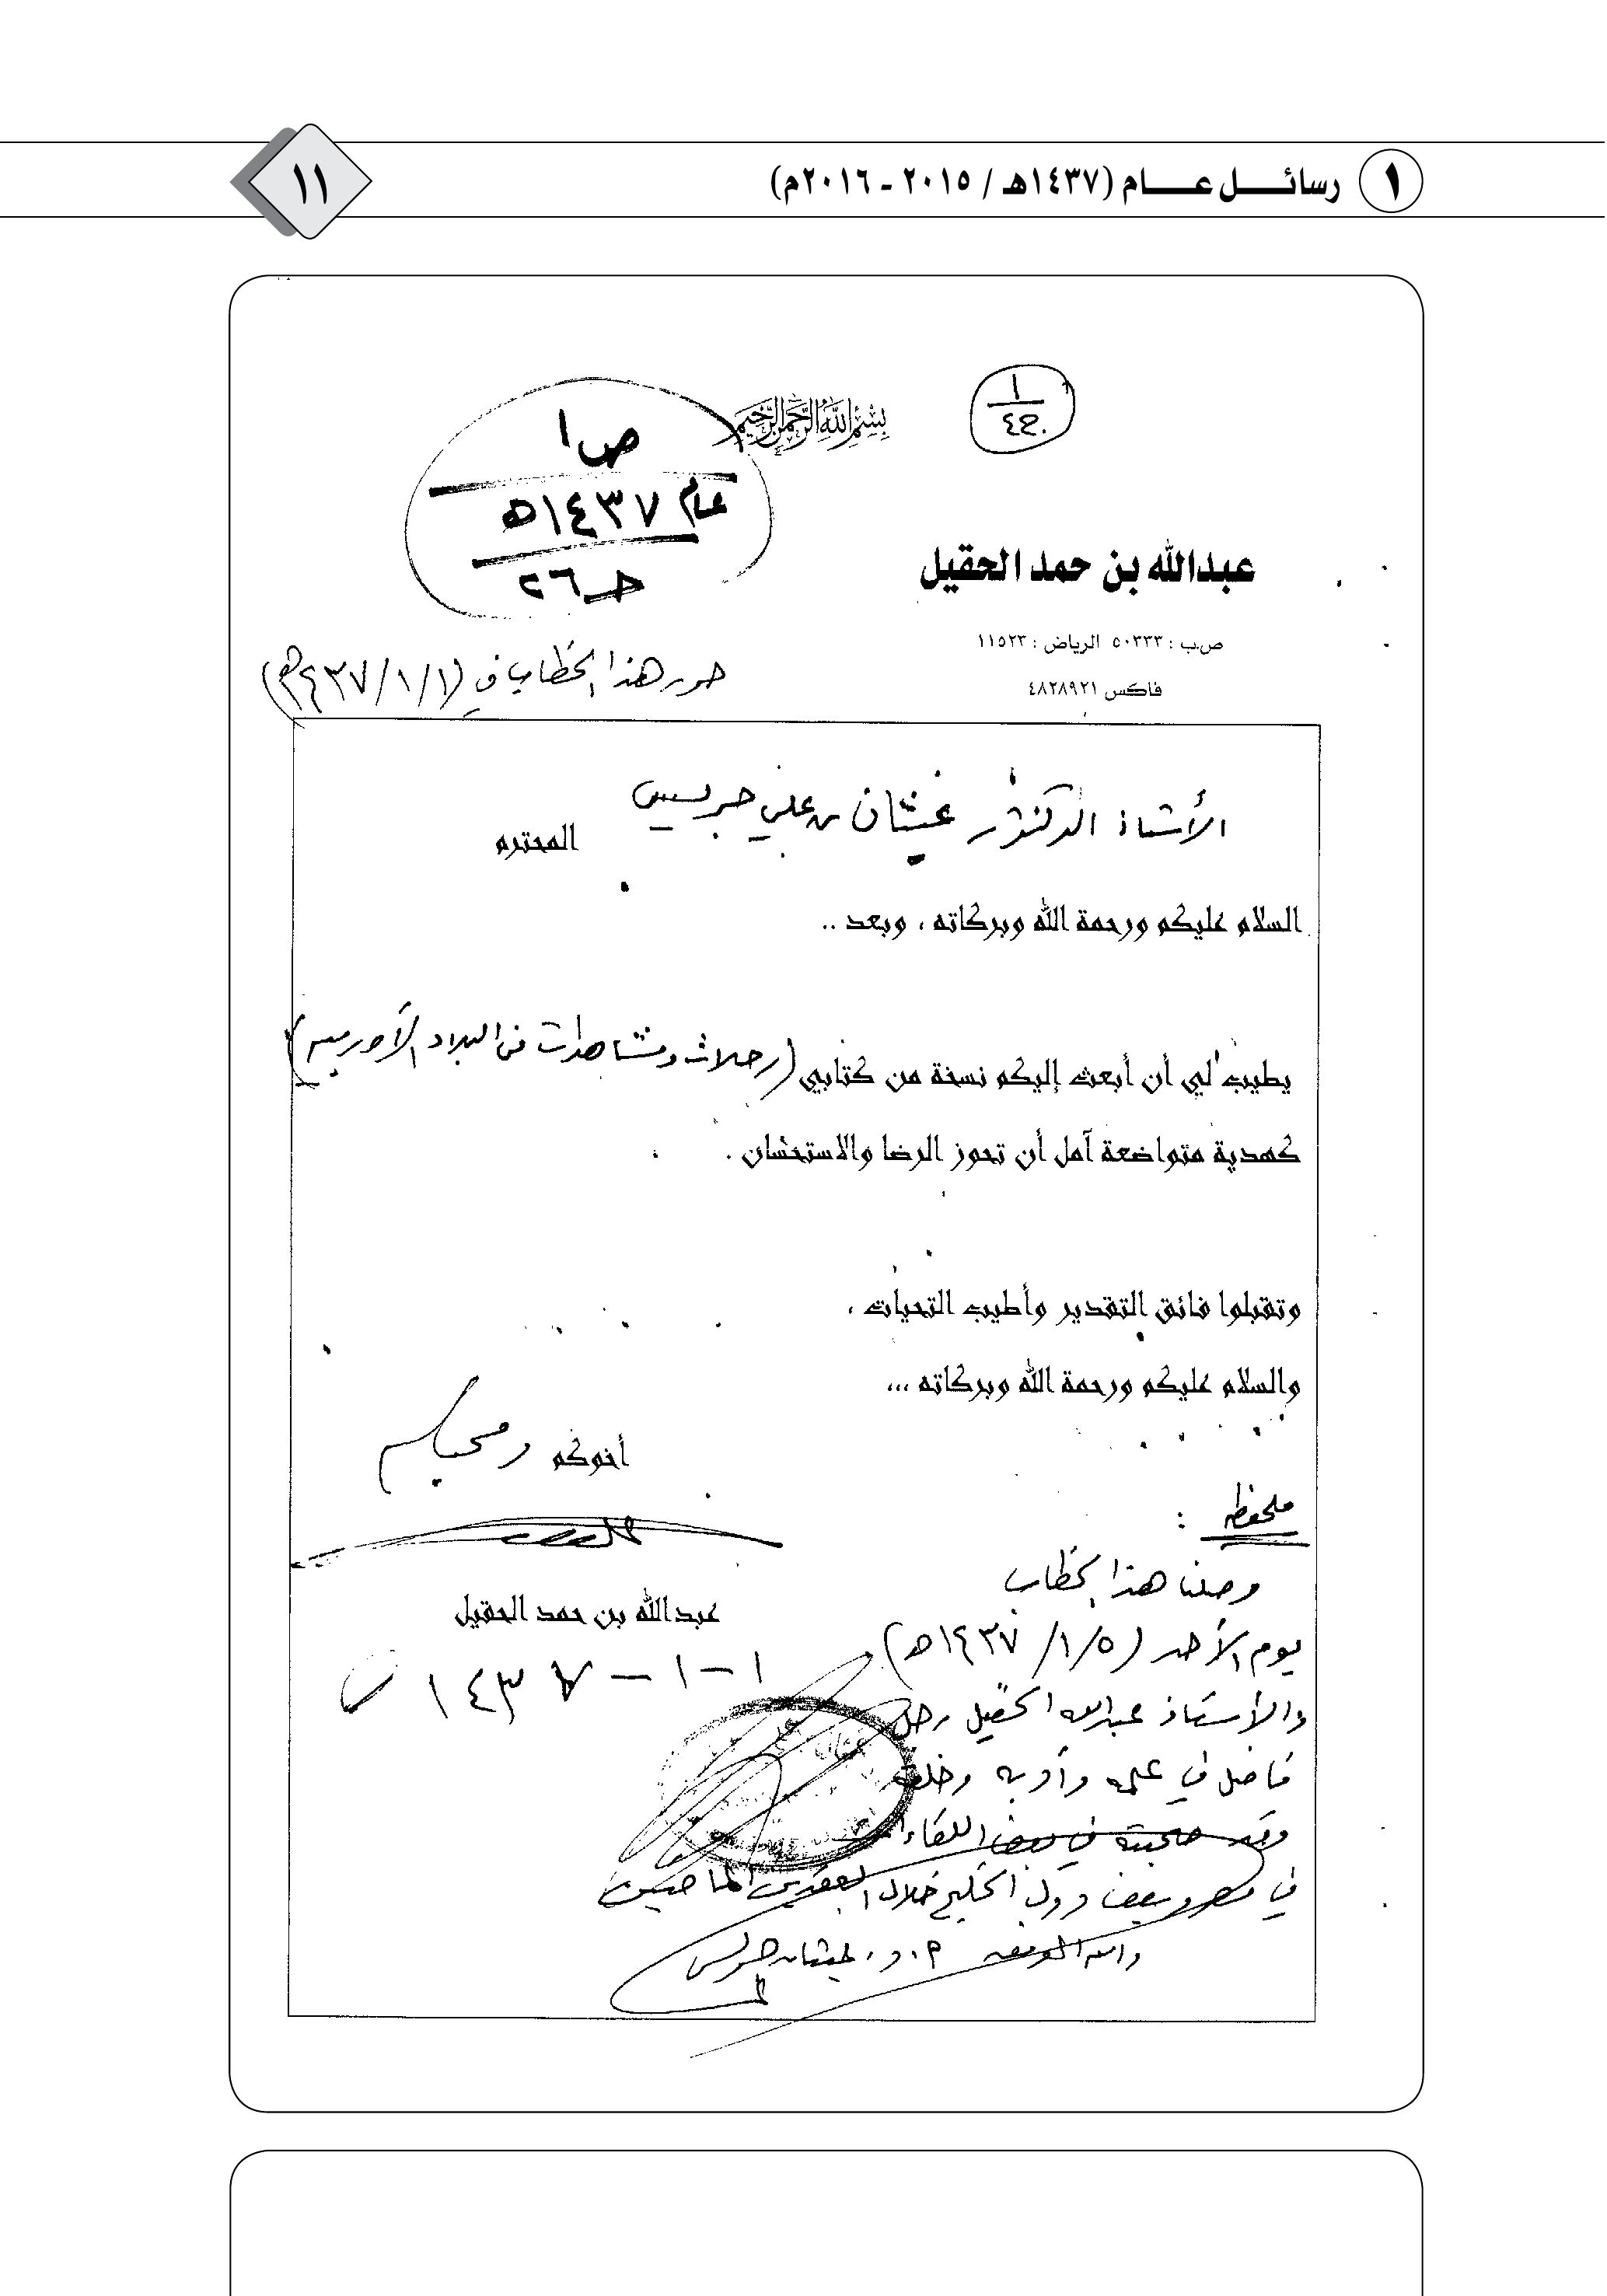 ١ رسائــــل عــــام (١٤٣٧هـ / ٢٠١٥ ـ ٢٠١٦م)
١١
بسم الله الرحمن الرحيم
ص١
عام ١٤٣٧هـ
حـ٢٦
عبدالله بن حمد الحقيل
ص.ب : ٥٠٣٣٣ الرياض : ١١٥٢٣
فاكس ٤٨٢٨٩٢١
حرر هذا الخطاب في (١/١/١٤٣٧هـ)
الأستاذ الدكتور غيثان بن علي جريس
المحترم
السلام عليكم ورحمة الله وبركاته ، وبعد ..
يطيب لي أن أبعث إليكم نسخة من كتابي (رحلات ومشاهدات في البلاد الأوربية)
كهدية متواضعة آمل أن تحوز الرضا والاستحسان .
وتقبلوا فائق التقدير وأطيب التحيات ،
والسلام عليكم ورحمة الله وبركاته ...
أخوكم ومحبكم
عبدالله بن حمد الحقيل
١-١-١٤٣٧
ملحظة :
وصلنا هذا الخطاب
يوم الأحد (٥/١/١٤٣٧هـ)
والأستاذ عبدالله الحقيل رجل
فاضل في علمه وأدبه وخلقه
وقد صحبته في بعض اللقاءات
في مصر وبعض دول الخليج خلال العقدين الماضيين
والله الموفق أ.د. غيثان جريس